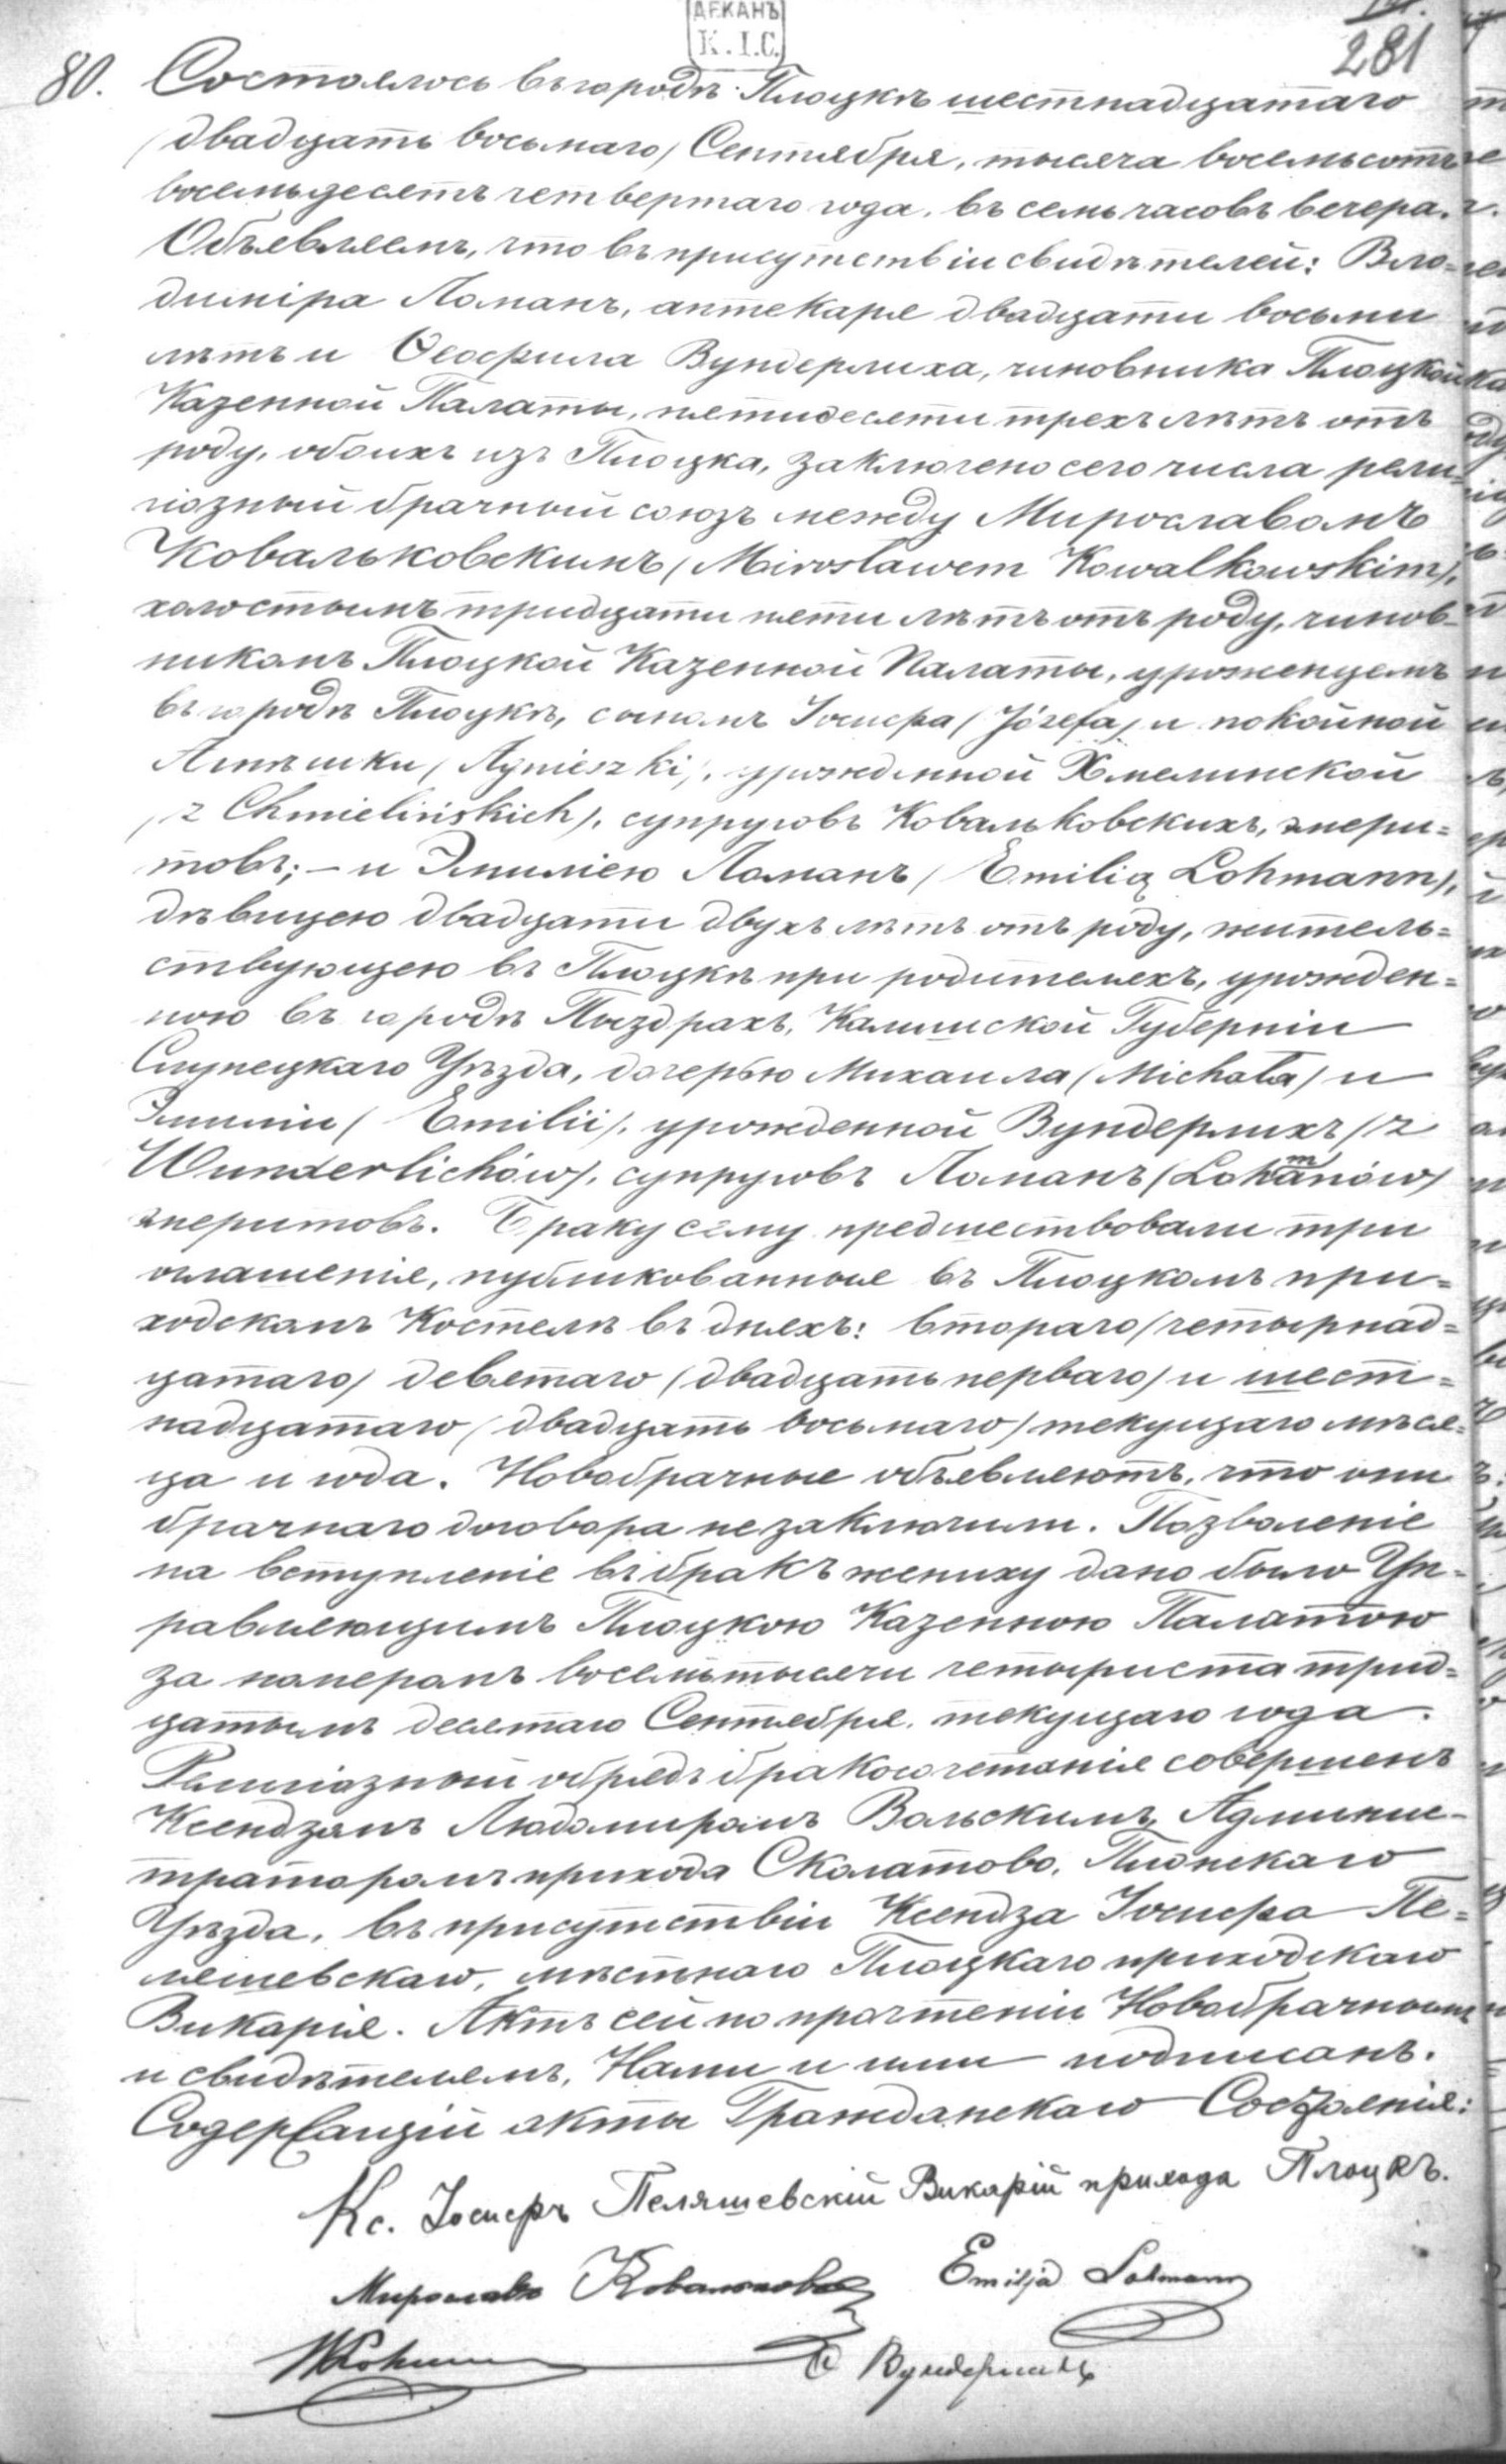 ДЕКАНЪ
K. I. C.
281
80. Состоялось въ городѣ Плоцкѣ шестнадцатаго
(двадцать восьмаго) Сентября, тысяча восемьсотъ
восемьдесятъ четвертаго года, въ семь часовъ вечера.
Объявляемъ, что въ присутствіи свидѣтелей: Вло=
диміра Ломанъ, аптекаря двадцати восьми
лѣтъ и Ѳеофила Вундерлиха, чиновника Плоцкой
Казенной Палаты, пятидесяти трехъ лѣтъ отъ
роду, обоихъ изъ Плоцка, заключено сего числа рели=
гіозный брачный союзъ между Мирославомъ
Ковальковскимъ (Mirosławem Kowalkowskim),
холостымъ тридцати пяти лѣтъ отъ роду, чинов-
никомъ Плоцкой Казенной Палаты, уроженцемъ
въ городѣ Плоцкѣ, сыномъ Іосифа (Józefa) и покойной
Агнѣшки (Agnieszki), урожденной Хмелинской
(z Chmielińskich), супруговъ Ковальковскихъ, эмери=
товъ; — и Эмиліею Ломанъ (Emilią Lohmann),
дѣвицею двадцати двухъ лѣтъ отъ роду, житель=
ствующею въ Плоцкѣ при родителяхъ, урожден=
ною въ городѣ Пыздрахъ, Калишской Губерніи
Слупецкаго Уѣзда, дочерью Михаила (Michała) и
Эмиліи (Emilii), урожденной Вундерлихъ (z
Wunderlichów), супруговъ Ломанъ (Lohmanów)
эмеритовъ. Браку сему предшествовали три
оглашенія, публикованныя въ Плоцкомъ при=
ходскомъ Костелѣ въ дняхъ: втораго (четырнад=
цатаго) девятаго (двадцать перваго) и шест=
надцатаго (двадцать восьмаго) текущаго мѣся=
ца и года. Новобрачные объявляютъ, что они
брачнаго договора незаключили. Позволеніе
на вступленіе въ бракъ жениху дано было Уп=
равляющимъ Плоцкою Казенною Палатою
за намеромъ восемьтысячи четыриста трид=
цатымъ десятаго Сентября, текущаго года.
Религіозный обрядъ бракосочетанія совершенъ
Ксендзомъ Людомиромъ Вольскимъ, Админис-
траторомъ прихода Сколатово, Плонскаго
Уѣзда, въ присутствіи Ксендза Іосифа Пе=
ляшевскаго, мѣстнаго Плоцкаго приходскаго
Викарія. Актъ сей по прочтеніи Новобрачнымъ
и свидѣтелямъ, Нами и ими подписанъ.
Содержащій акты Гражданскаго Состоянія:
Кс. Іосифъ Пеляшевскій Викарій прихода Плоцкъ.
Мирославъ Ковальковскій Emilja Lohmann
WLohmann Ѳ Вундерлихъ